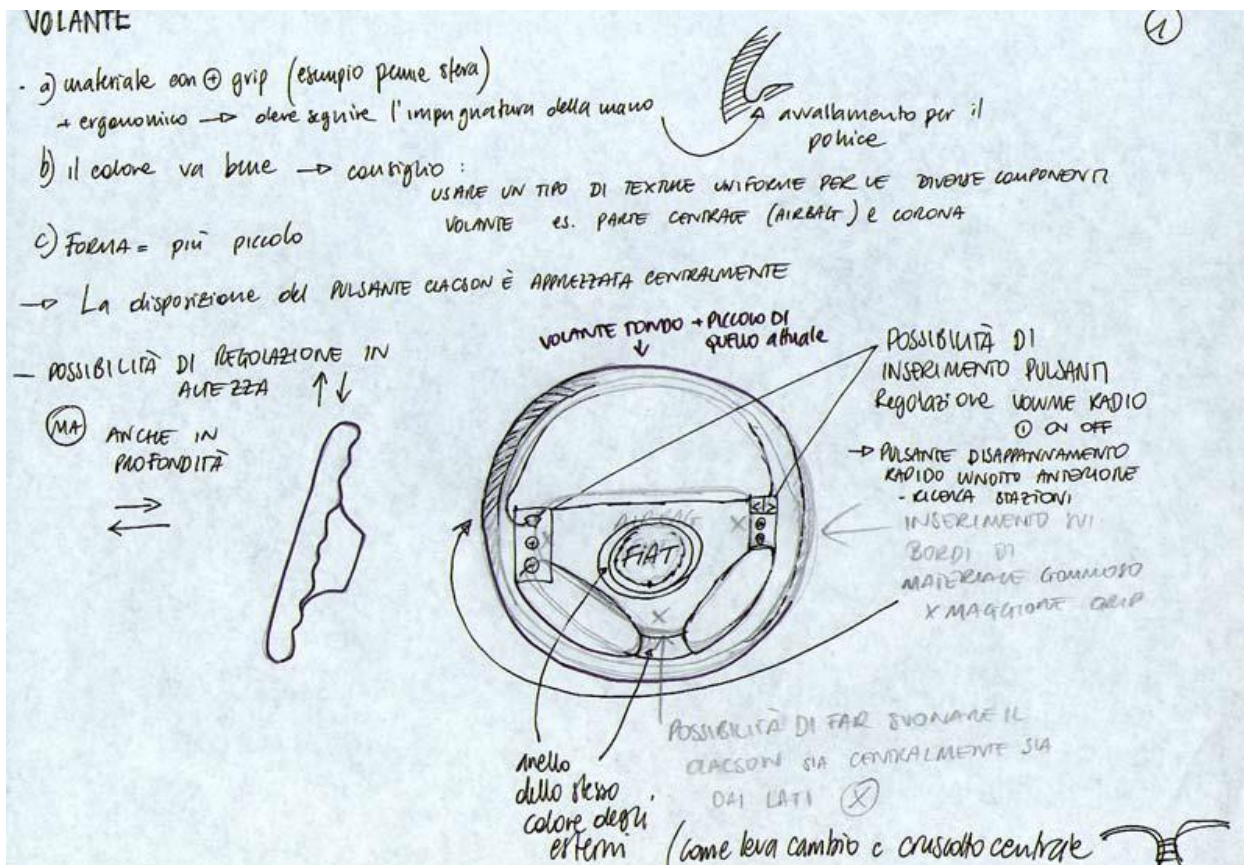 VOLANTE
1
- a) materiale con + grip (esempio penne sfera)
+ ergonomico → deve seguire l'impugnatura della mano
avvallamento per il
pollice
b) il colore va bene → consiglio :
USARE UN TIPO DI TEXTURE UNIFORME PER LE DIVERSE COMPONENTI
VOLANTE es. PARTE CENTRALE (AIRBAG) e CORONA
c) FORMA = più piccolo
→ La disposizione del PULSANTE CLACSON È APPREZZATA CENTRALMENTE
- POSSIBILITÀ DI REGOLAZIONE IN
ALTEZZA
MA ANCHE IN
PROFONDITÀ
VOLANTE TONDO + PICCOLO DI
QUELLO attuale
POSSIBILITÀ DI
INSERIMENTO PULSANTI
Regolazione VOLUME RADIO
ON OFF
→ PULSANTE DISAPPANNAMENTO
RAPIDO LUNOTTO ANTERIORE
- RICERCA STAZIONI
INSERIMENTO SUI
BORDI DI
MATERIALE GOMMOSO
X MAGGIORE GRIP
AIRBAG
FIAT
POSSIBILITÀ DI FAR SUONARE IL
CLACSON SIA CENTRALMENTE SIA
DAI LATI X
anello
dello stesso
colore degli
esterni
(come leva cambio e cruscotto centrale